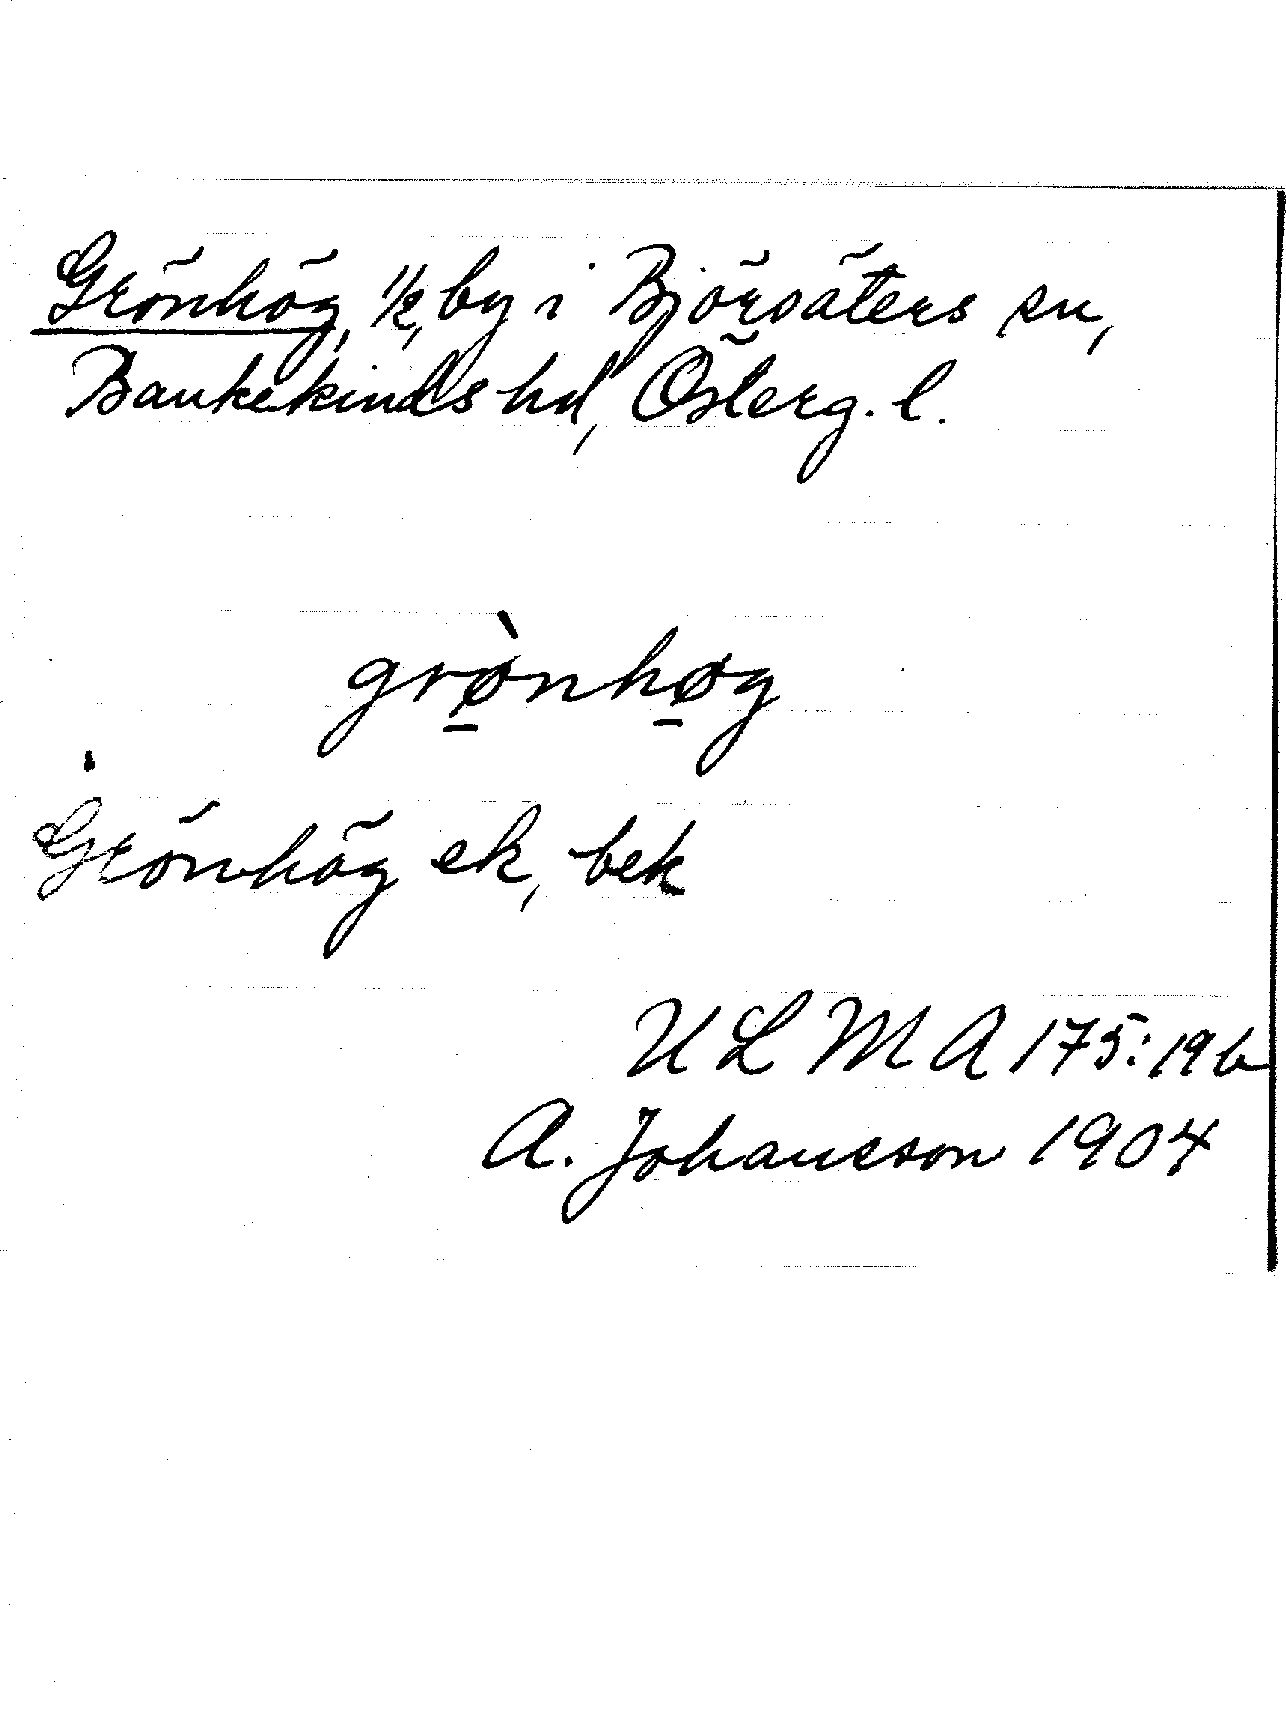 Grönhög, 1/2, by i Björsäters sn,
Bankekinds hd, Österg. l.
grø̠̀nhø̠g
Grönhög ek, bek
ULMA 175:19b
A. Johansson 1904